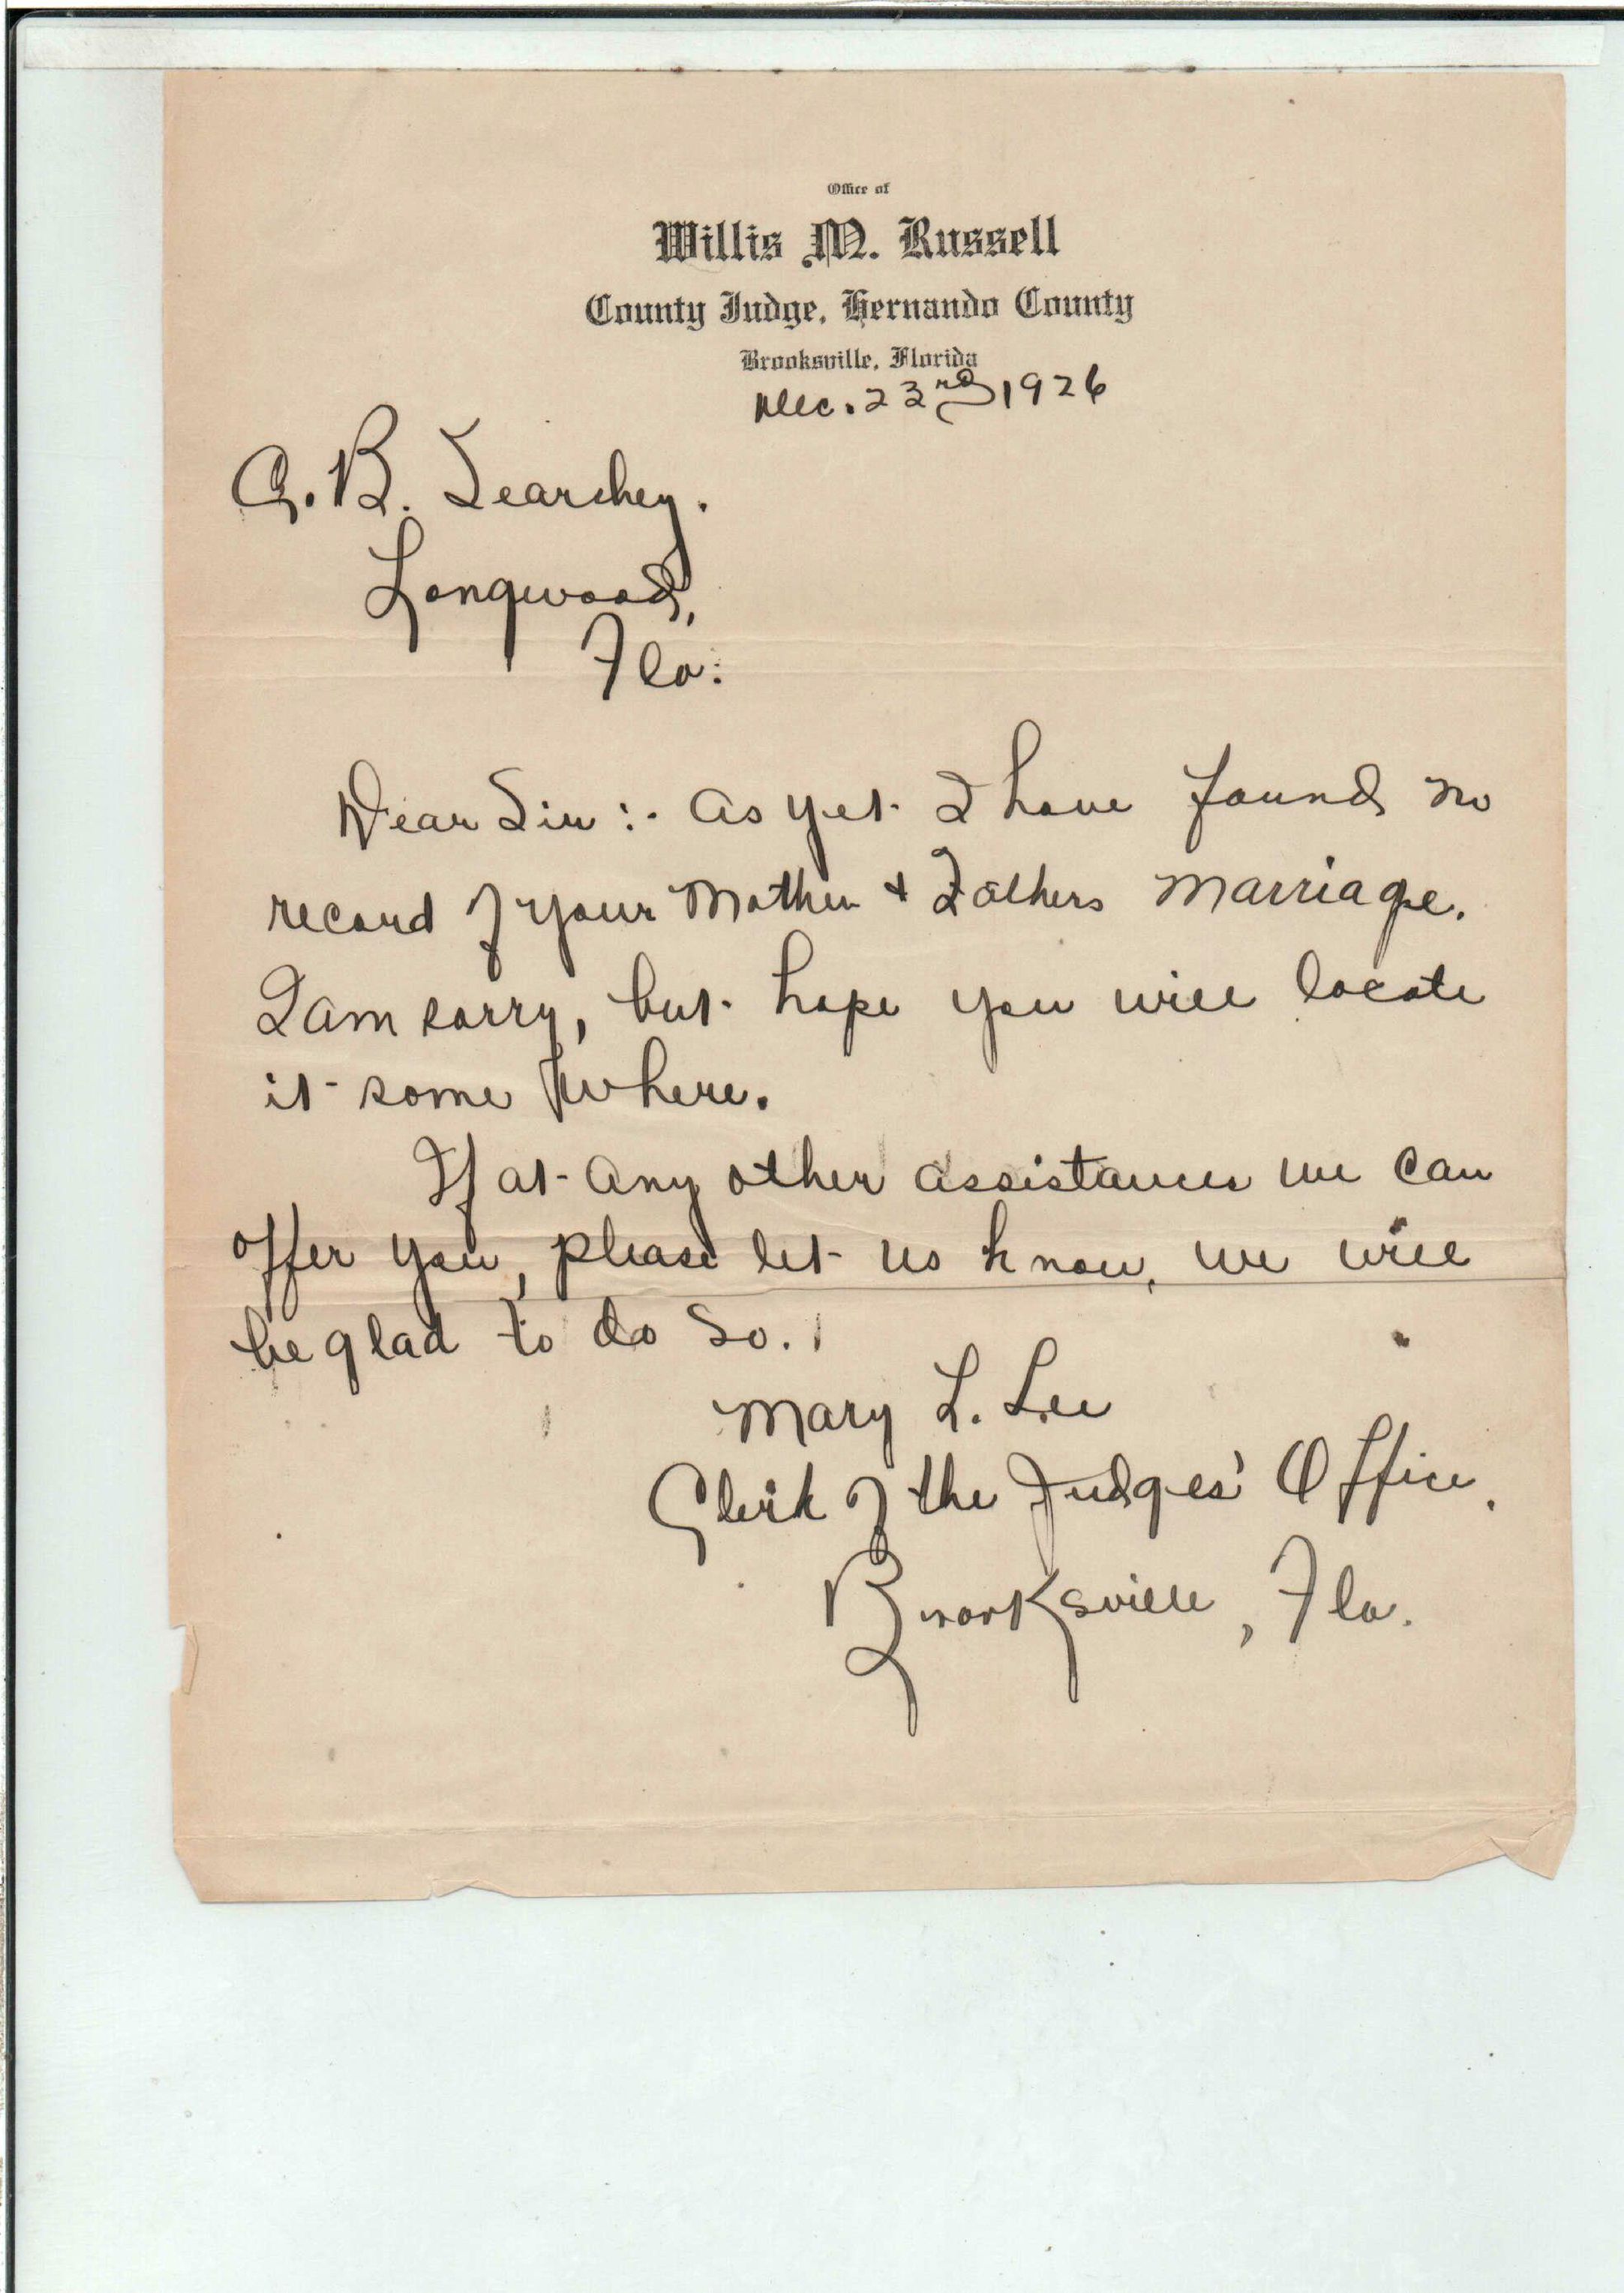 Office of
Willis M. Russell
County Judge, Hernando County
Brooksville, Florida
Dec. 23rd 1926
G. B. Searchey.
Longwood,
Fla.
Dear Sir :- as yet I have found no
record of your Mother & Fathers Marriage.
I am sorry, but hope you will locate
it some where.
If at any other assistance we can
offer you, please let us know, we will
be glad to do so.
Mary L. Lee
Clerk of the Judges' Office.
Brooksville, Fla.